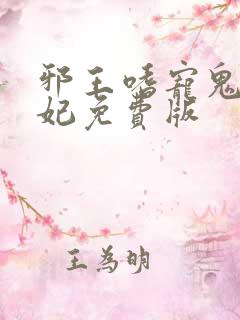 邪王嗜寵鬼
妃免費版
王為明